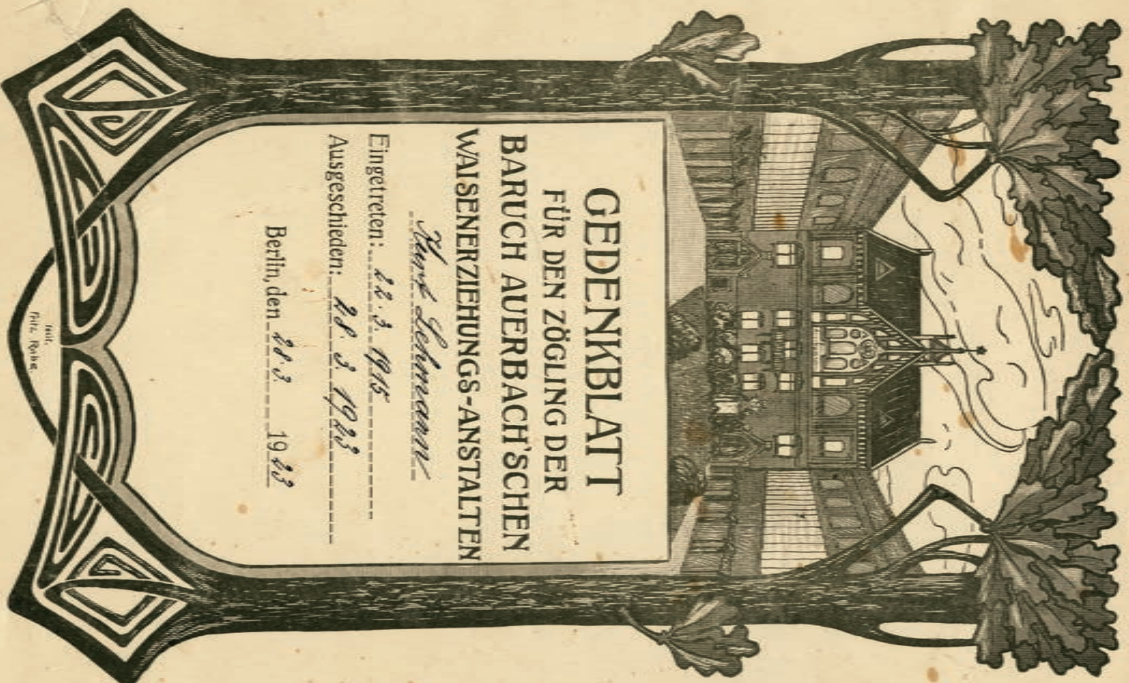 GEDENKBLATT
FÜR DEN ZÖGLING DER
BARUCH AUERBACH'SCHEN
WAISENERZIEHUNGS-ANSTALTEN
Kurt Lehmann
Eingetreten: 22.3.1915
Ausgeschieden: 28.3.1923
Berlin, den 28.3. 1923
Fritz Rabe.